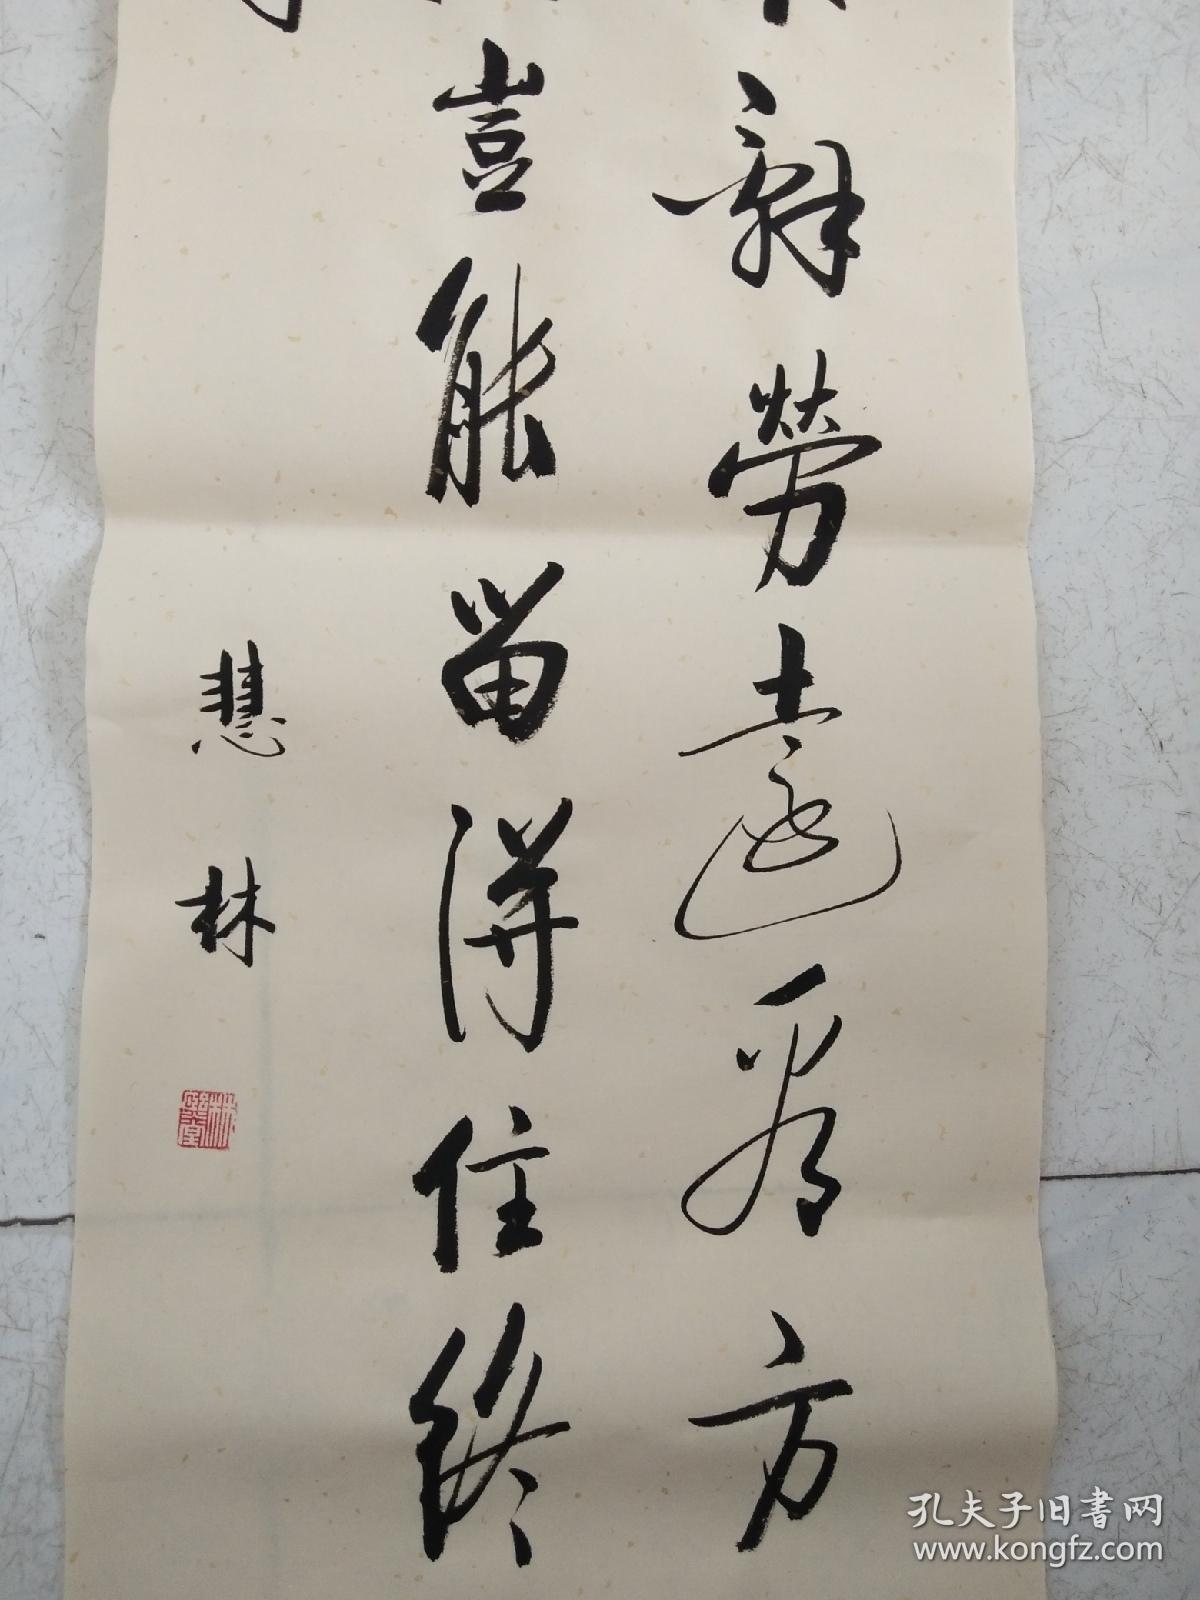 辭勞遠看方
豈能留得住終
慧林
孔夫子旧书网
www.kongfz.com